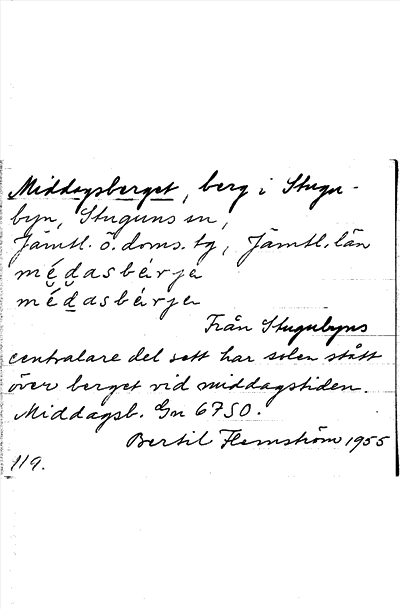 Middagsberget, berg i Stugu-
byn, Stuguns sn,
Jämtl. ö. doms. tg, Jämtl. län
médasbérja
médasbérjer
Från Stugubyns
centralare del sett har solen stått
över berget vid middagstiden.
Middagsb. Gn 6750.
Bertil Flemström 1955
119.